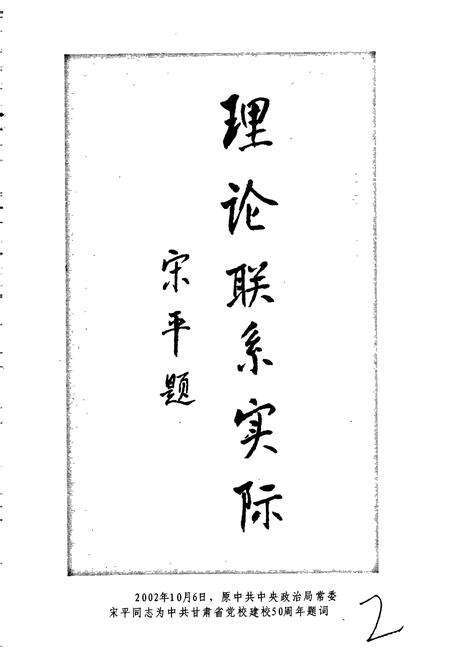 理论联系实际
宋平题
2002年10月6日，原中共中央政治局常委
宋平同志为中共甘肃省党校建校50周年题词
2